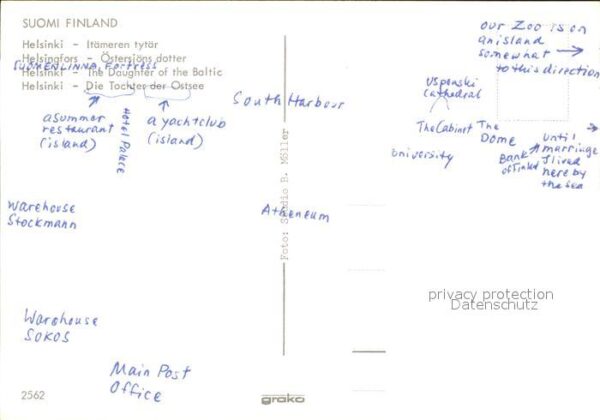 SUOMI FINLAND
Helsinki - Itämeren tytär
Helsingfors - Östersjöns dotter
SUOMENLINNA Fortress
Helsinki - The Daughter of the Baltic
Helsinki - Die Tochter der Ostsee
a summer
restaurant
(island)
Hotel Palace
a yachtclub
(island)
South Harbour
our Zoo is on
an island
somewhat
to this direction
Uspenski
Cathedral
The Cabinet
The
Dome
University
Bank
of Finland
until
marriage
I lived
here by
the sea
Warehouse
Stockmann
Atheneum
Foto: Studio B. Möller
privacy protection
Datenschutz
Warehouse
SOKOS
Main Post
Office
2562
grako